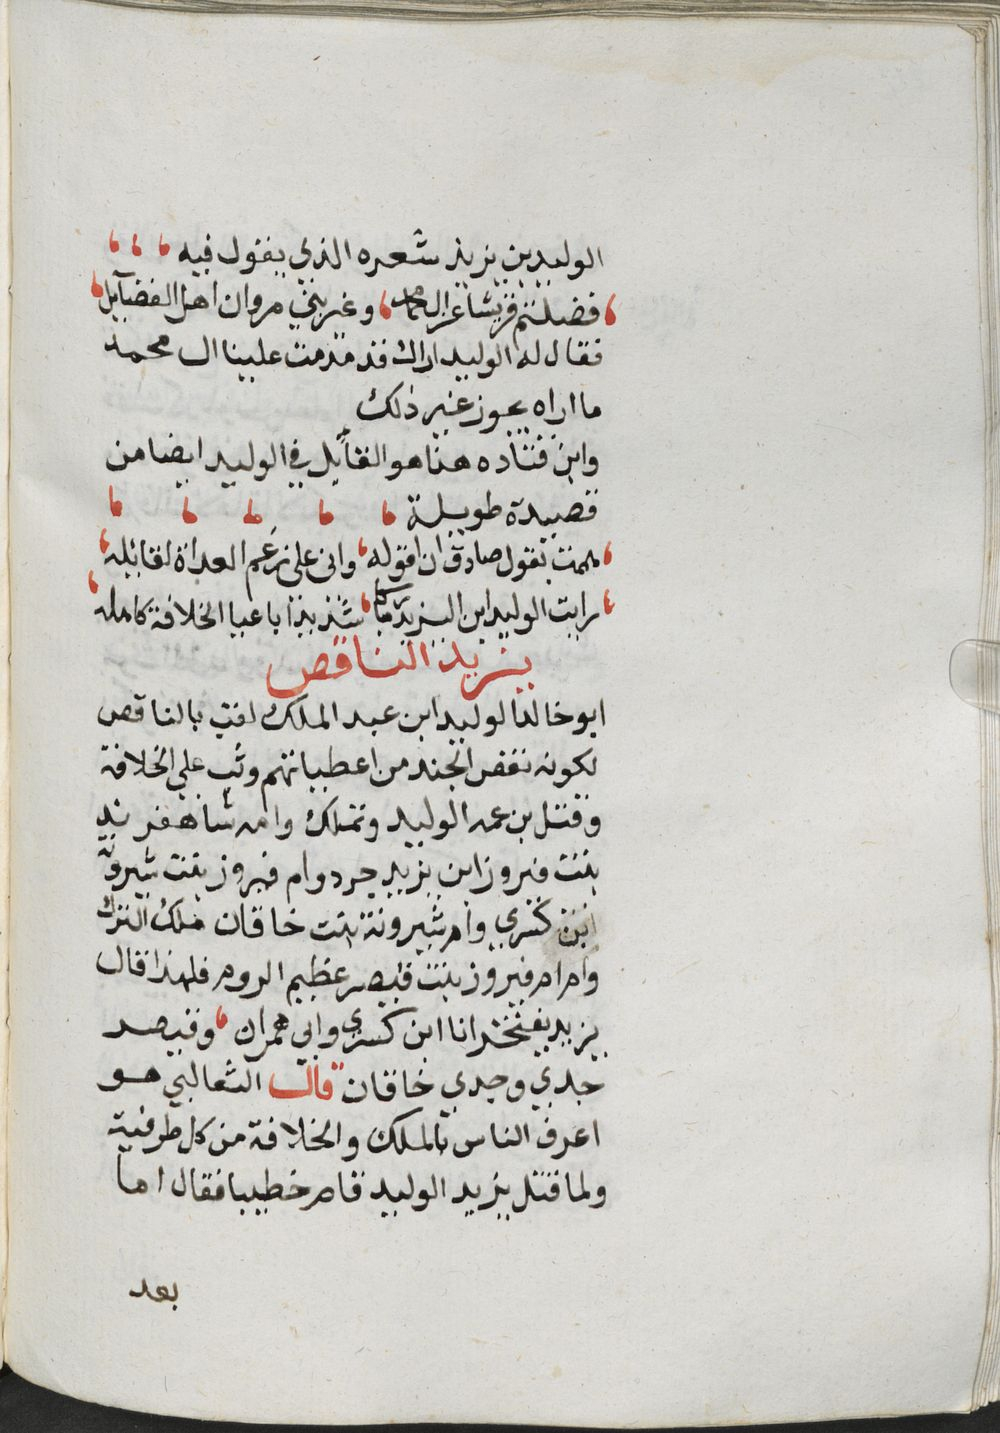 الوليد بن يزيذ شعره الذي يقول فيه
فضلتم قريشا غير ال محمد وغير بني مروان اهل الفضآيل
فقال له الوليد اراك قد قدمت علينا ال محمد
ما اراه يجوز غير ذلك
وابن قتاده هذا هو القآيل في الوليد ايضا من
قصيدة طويلة
هممت بقول صادق ان اقوله واني على رغم العداة لقائله
رايت الوليد ابن اليزيد مباركا شديدا باعبا الخلافة كامله
يزيد الناقص
ابو خالد الوليد ابن عبد الملك لقب بالناقص
لكونه نقص الجند من اعطياتهم وثب على الخلافة
وقتل بن عمه الوليد وتملك وامه شاهفرند
بنت فيروز ابن يزيد جرد وام فيروز بنت شيرونه
ابن كسري وام شيرونة بنت خاقان ملك الترك
وام ام فيروز بنت قيصر عظيم الروم فلهذا قال
يزيد يفتخر انا ابن كسري وابي مروان وقيصر
جدي وجدي خاقان قال الثعالبي هو
اعرف الناس بالملك والخلافة من كل طرفية
ولما قتل يزيد الوليد قام خطيبا فقال اما
بعد